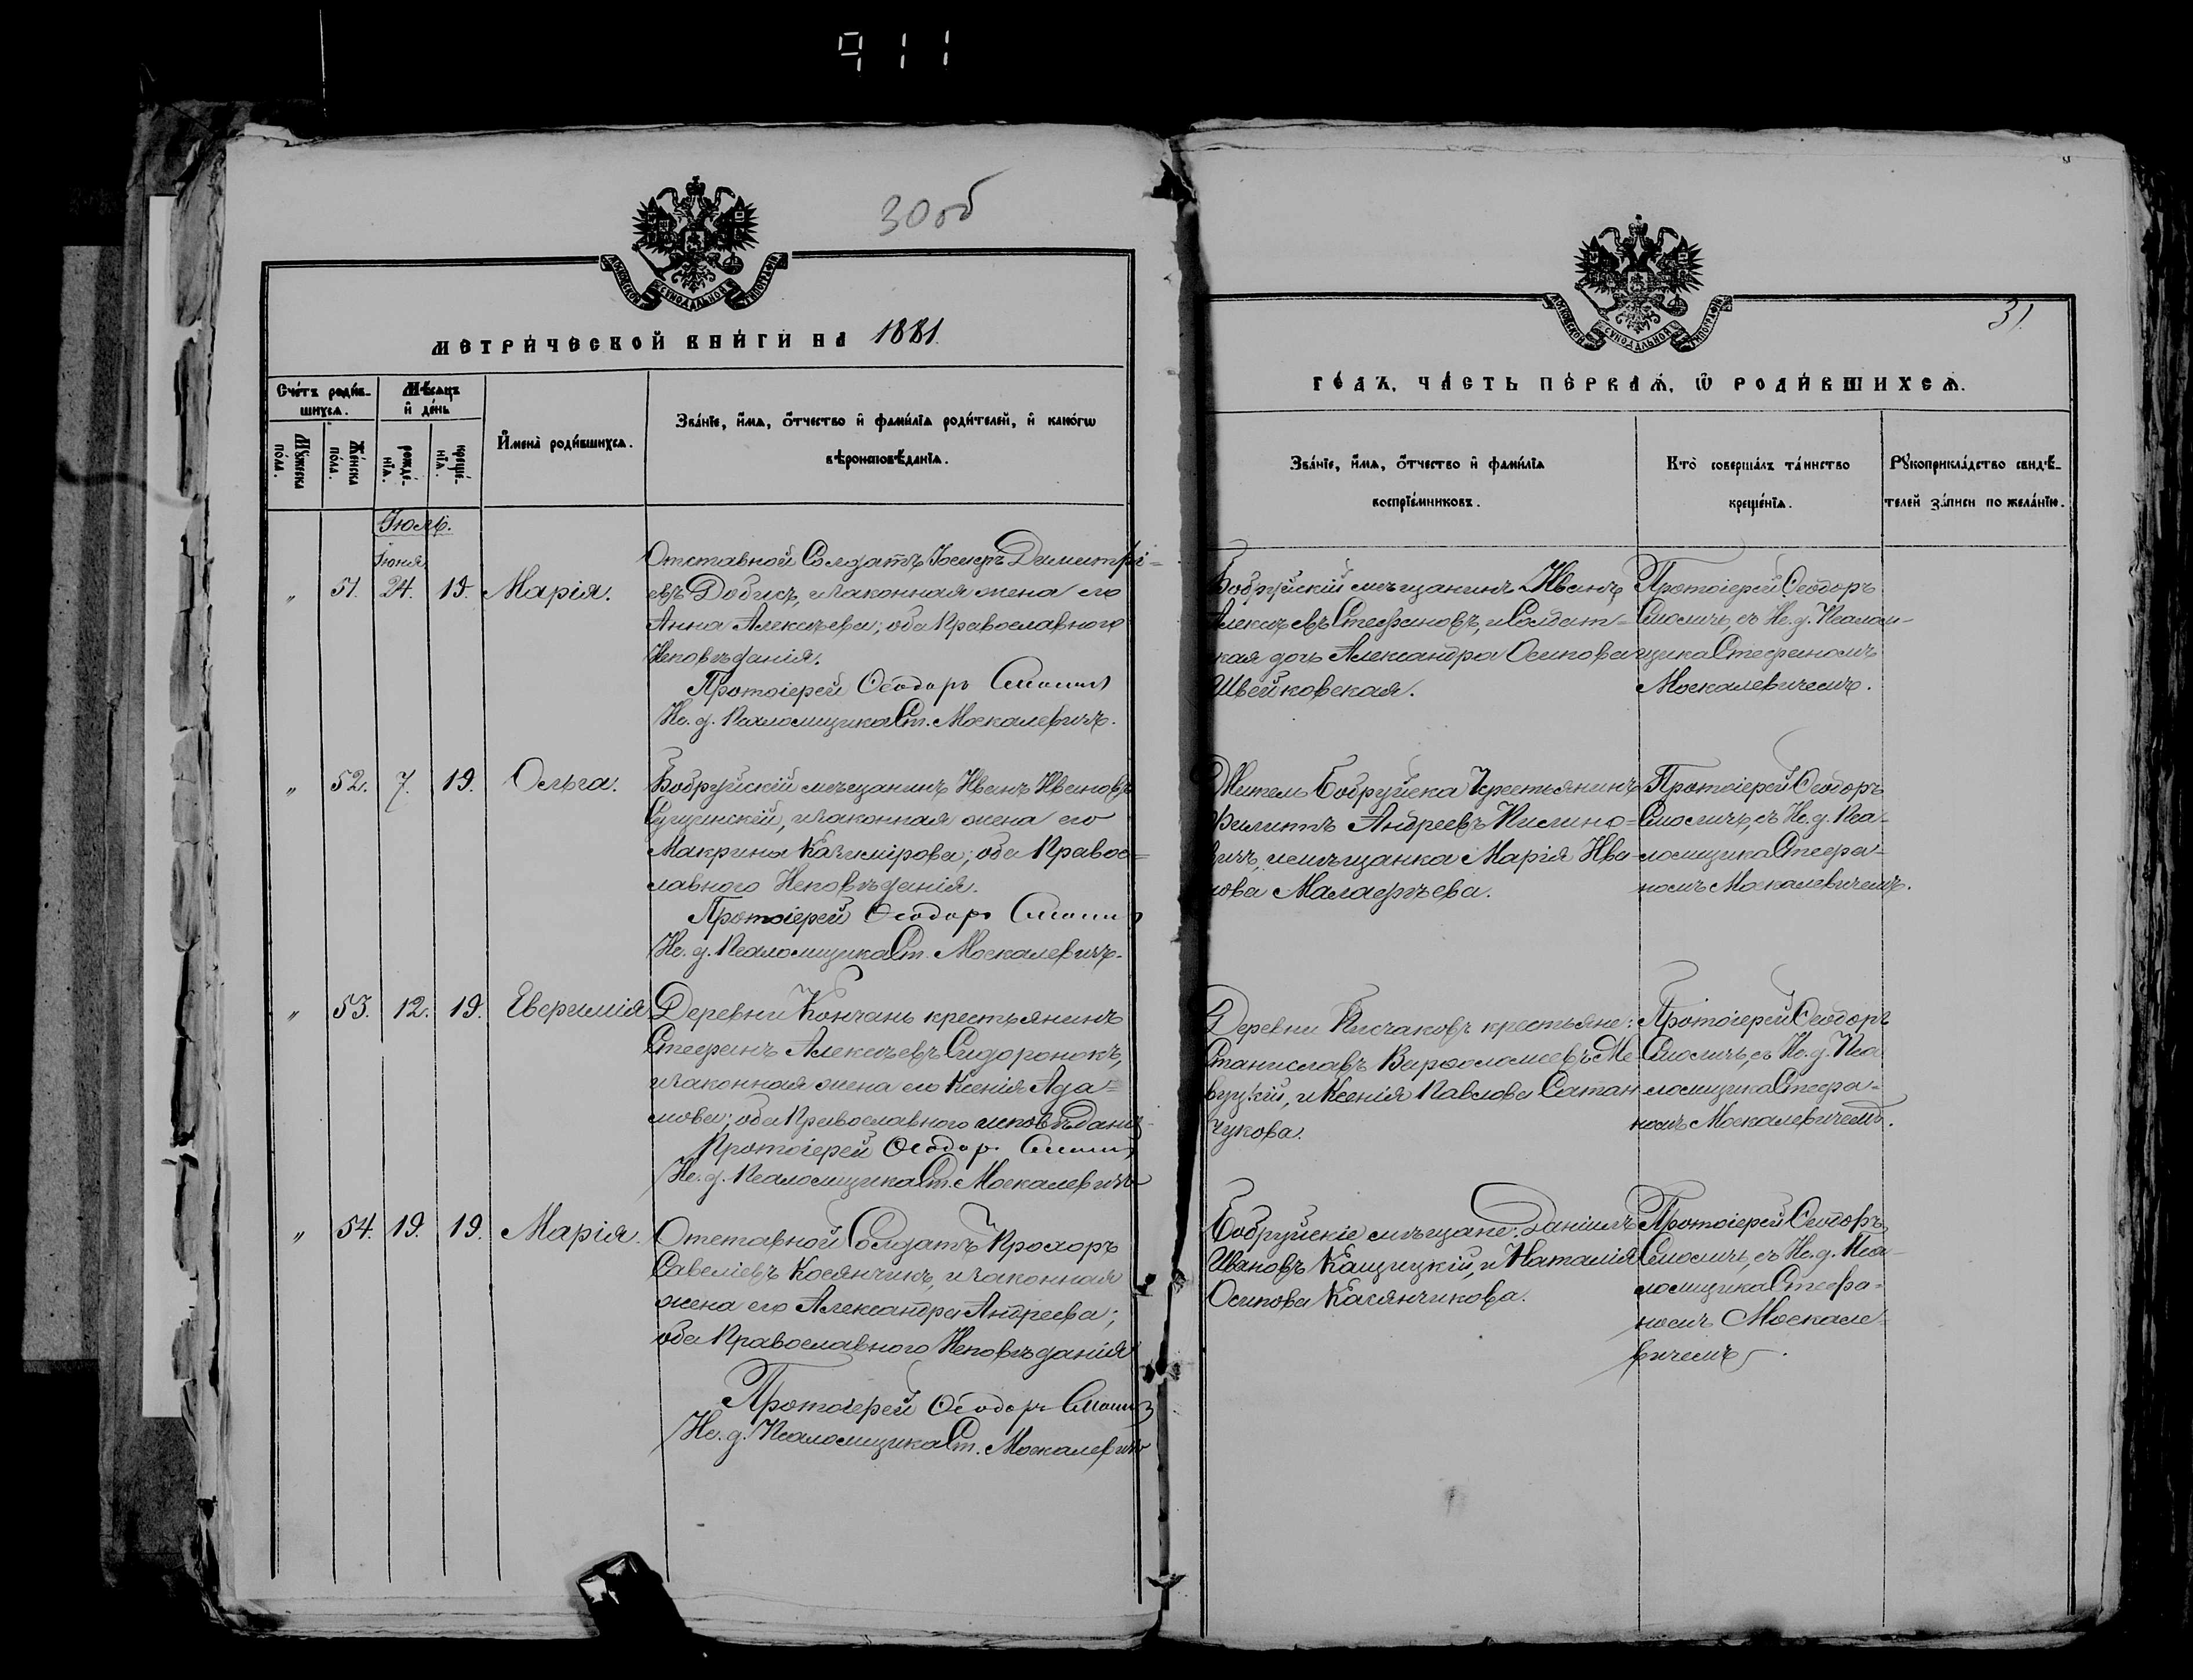 911
30 об
МЕТРИ́ЧЕСКОЙ КНИ́ГИ НА 1881.
Сче́тъ роди́в-
шихсѧ.
Мѣ́сѧцъ
и҆ де́нь
Мꙋ́жеска
по́ла.
Же́нска
по́ла.
рожде́-
нїѧ.
креще́-
нїѧ.
И҆мена̀ роди́вшихсѧ.
Зва́нїе, и҆́мѧ, ѻ҆́тчество и҆ фамѝлїа роди́телей, и҆ како́гѡ
вѣроисповѣ́данїѧ.
Іюль.
Іюня
„ 51. 24. 19. Марія.
Отставной Солдатъ Іосифъ Димитрі=
евъ Добисъ, и законная жена его
Анна Алексѣева; оба Православнаго
Исповѣданія.
Протоіерей Ѳеодоръ Смоличъ
Ис. д. Псаломщика Ст. Москалевичъ.
„ 52. 7. 19. Ольга.
Бобруйскій мѣщанинъ Иванъ Ивановъ
Сущинскій, и законная жена его
Макрина Казимірова; оба Правос=
лавного Исповѣданія.
Протоіерей Ѳеодоръ Смоличъ
Ис. д. Псаломщика Ст. Москалевичъ.
„ 53. 12. 19. Евфимія
Деревни Кончанъ крестьянинъ
Стефанъ Алексѣевъ Сидоронокъ,
и законная жена его Ксенія Ада=
мова; оба Православного исповѣданія
Протоіерей Ѳеодоръ Смоличъ
Ис. д. Псаломщика Ст. Москалевичъ
„ 54. 19. 19. Марія.
Отставной Солдатъ Прохоръ
Савеліевъ Косянчикъ, и законная
жена его Александра Андреева;
оба Православного Исповѣданія
Протоіерей Ѳеодоръ Смоличъ
Ис. д. Псаломщика Ст. Москалевичъ
31.
ГО́ДЪ, ЧА́СТЬ ПЕ́РВАѦ, Ѡ҆ РОДИ́ВШИХСѦ.
Зва́нїе, и҆́мѧ, ѻ҆́тчество и҆ фамѝлїа
воспрїе́мниковъ.
Кто̀ соверша́лъ та́инство
креще́нїѧ.
Рꙋкоприкла́дство свидѣ́-
телей за́писи по жела́нїю.
Бобруйскій мѣщанинъ Иванъ
Алексѣевъ Стефановъ, и Солдат=
ская дочь Александра Осипова
Швейковская.
Протоіерей Ѳеодоръ
Смоличъ, съ Ис. д. Псалом-
щика Стефаномъ
Москалевичемъ.
Житель Бобруйска Крестьянинъ
Филиппъ Андреевъ
и мѣщанка Марія Ива-
нова Малафѣева.
Протоіерей Ѳеодоръ
Смоличъ, съ Ис. д. Пса-
ломщика Стефа=
номъ Москалевичемъ.
Деревни крестьяне:
Станиславъ Варѳоломеевъ
и Ксенія Павлова Сатан
чукова.
Протоіерей Ѳеодоръ
Смоличъ, съ Ис. д. Пса
ломщика Стефа=
номъ Москалевичемъ.
Бобруйскіе мѣщане: Даніилъ
Ивановъ Кащицкій, и Наталія
Осипова Касянчикова.
Протоіерей Ѳеодоръ
Смоличъ, съ Ис. д. Пса-
ломщика Стефа=
номъ Москале-
вичемъ.